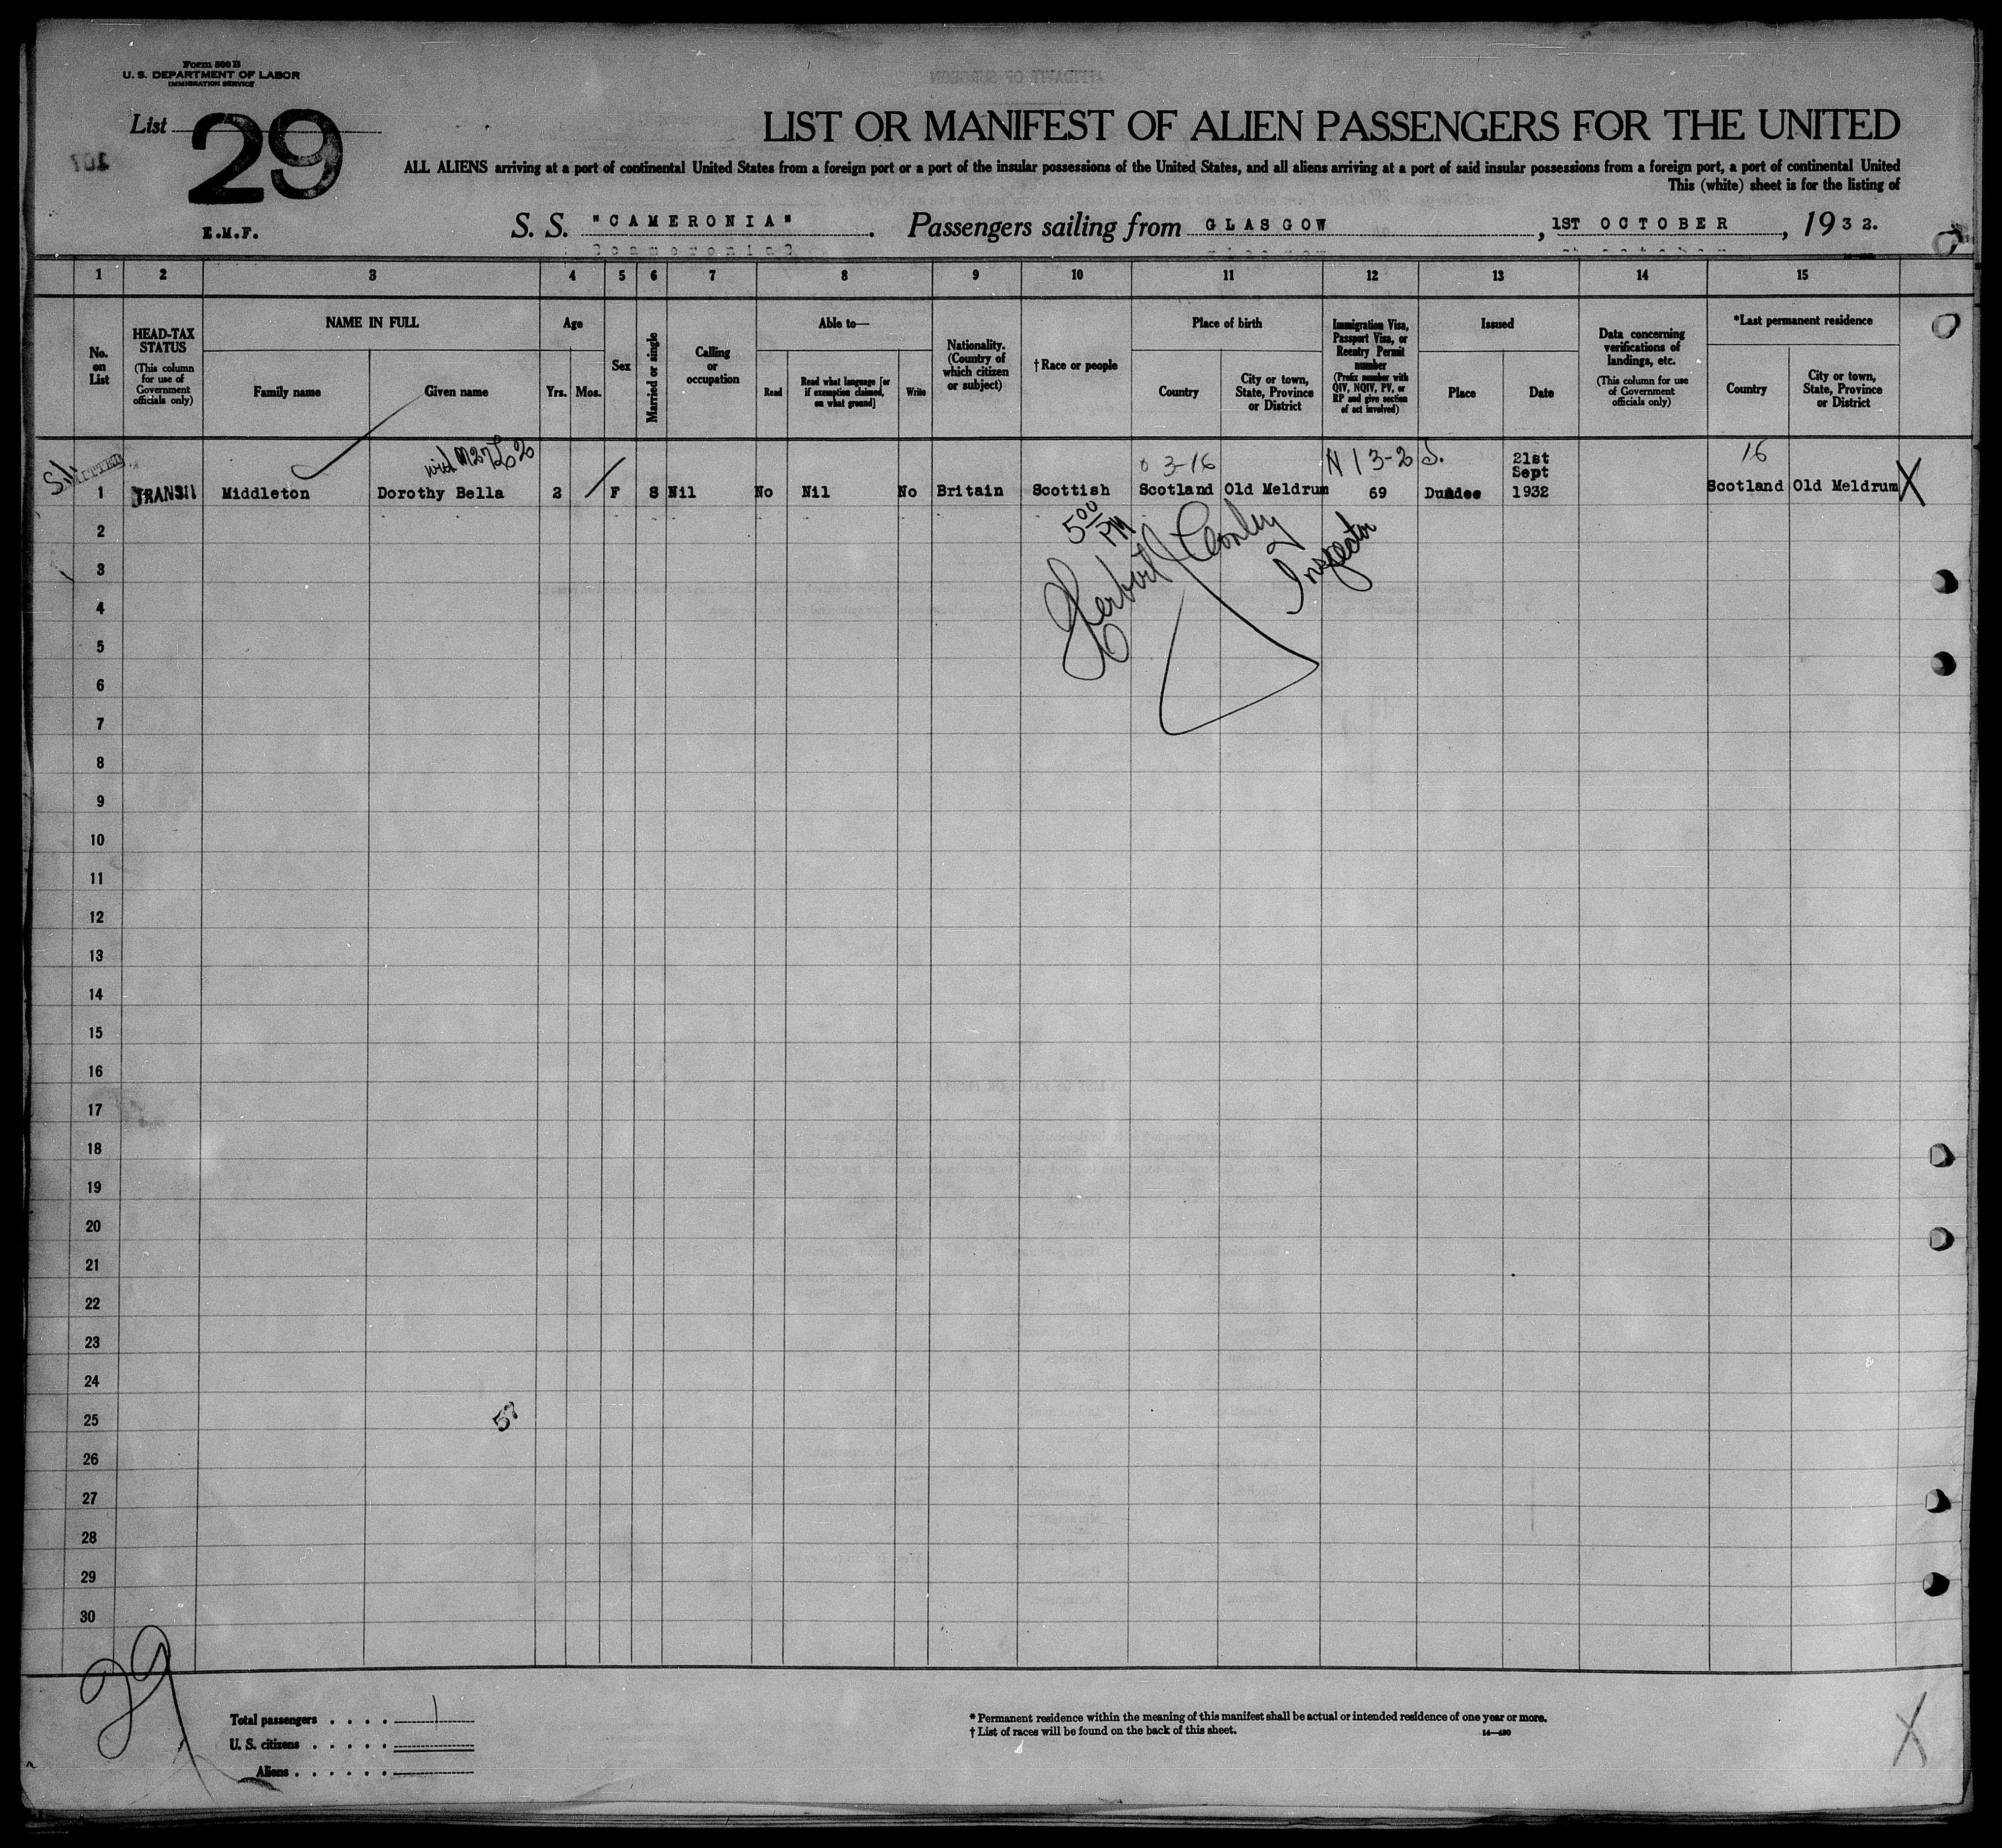 Form 500 B
U. S. DEPARTMENT OF LABOR
IMMIGRATION SERVICE
List 29
LIST OR MANIFEST OF ALIEN PASSENGERS FOR THE UNITED
ALL ALIENS arriving at a port of continental United States from a foreign port or a port of the insular possessions of the United States, and all aliens arriving at a port of said insular possessions from a foreign port, a port of continental United
This (white) sheet is for the listing of
E.M.F.
S. S. "CAMERONIA". Passengers sailing from GLASGOW, 1ST OCTOBER, 1932.
1 2 3 4 5 6 7 8 9 10 11 12 13 14 15
No. on List
HEAD-TAX STATUS
(This column for use of Government officials only)
NAME IN FULL
Family name
Given name
Age
Yrs.
Mos.
Sex
Married or single
Calling or occupation
Able to—
Read
Read what language [or if exemption claimed, on what ground]
Write
Nationality. (Country of which citizen or subject)
†Race or people
Place of birth
Country
City or town, State, Province or District
Immigration Visa, Passport Visa, or Reentry Permit number
(Prefix number with QIV, NQIV, PV, or RP and give section of act involved)
Issued
Place
Date
Data concerning verifications of landings, etc.
(This column for use of Government officials only)
*Last permanent residence
Country
City or town, State, Province or District
3-16
N I 3-2
S.
21st Sept
16
1 TRANSIT Middleton Dorothy Bella 2 F S Nil No Nil No Britain Scottish Scotland Old Meldrum 69 Dundee 1932 Scotland Old Meldrum X
5 00 PM
Herbert
Inspector
2
3
4
5
6
7
8
9
10
11
12
13
14
15
16
17
18
19
20
21
22
23
24
25
26
27
28
29
30
29
Total passengers . . . . 1
U. S. citizens . . . . .
Aliens . . . . . .
* Permanent residence within the meaning of this manifest shall be actual or intended residence of one year or more.
† List of races will be found on the back of this sheet.
14—430
X